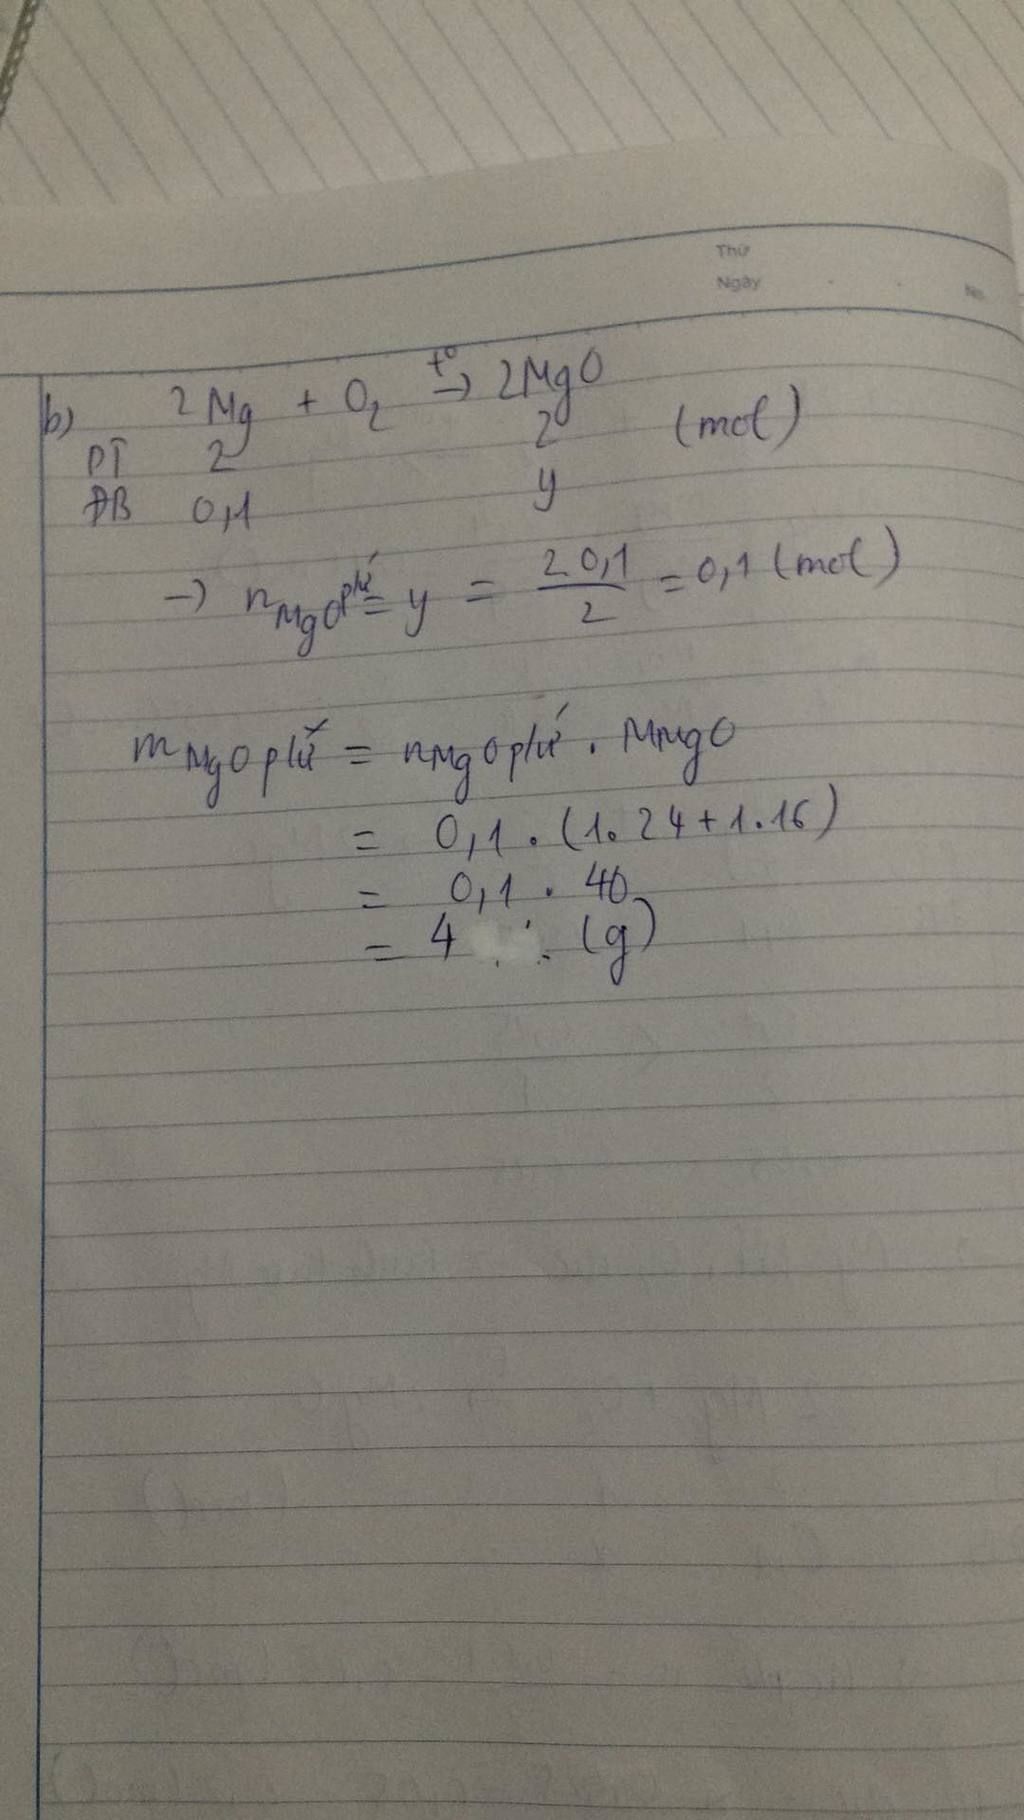 Thứ
Ngày
No.
b) 2Mg + O₂ t° → 2MgO
PT 2 2 (mol)
ĐB 0,1 y
→ nMgO pứ = y = 2 0,1 / 2 = 0,1 (mol)
mMgO pứ = nMgO pứ . MMgO
= 0,1 . (1.24 + 1.16)
= 0,1 . 40
= 4 (g)